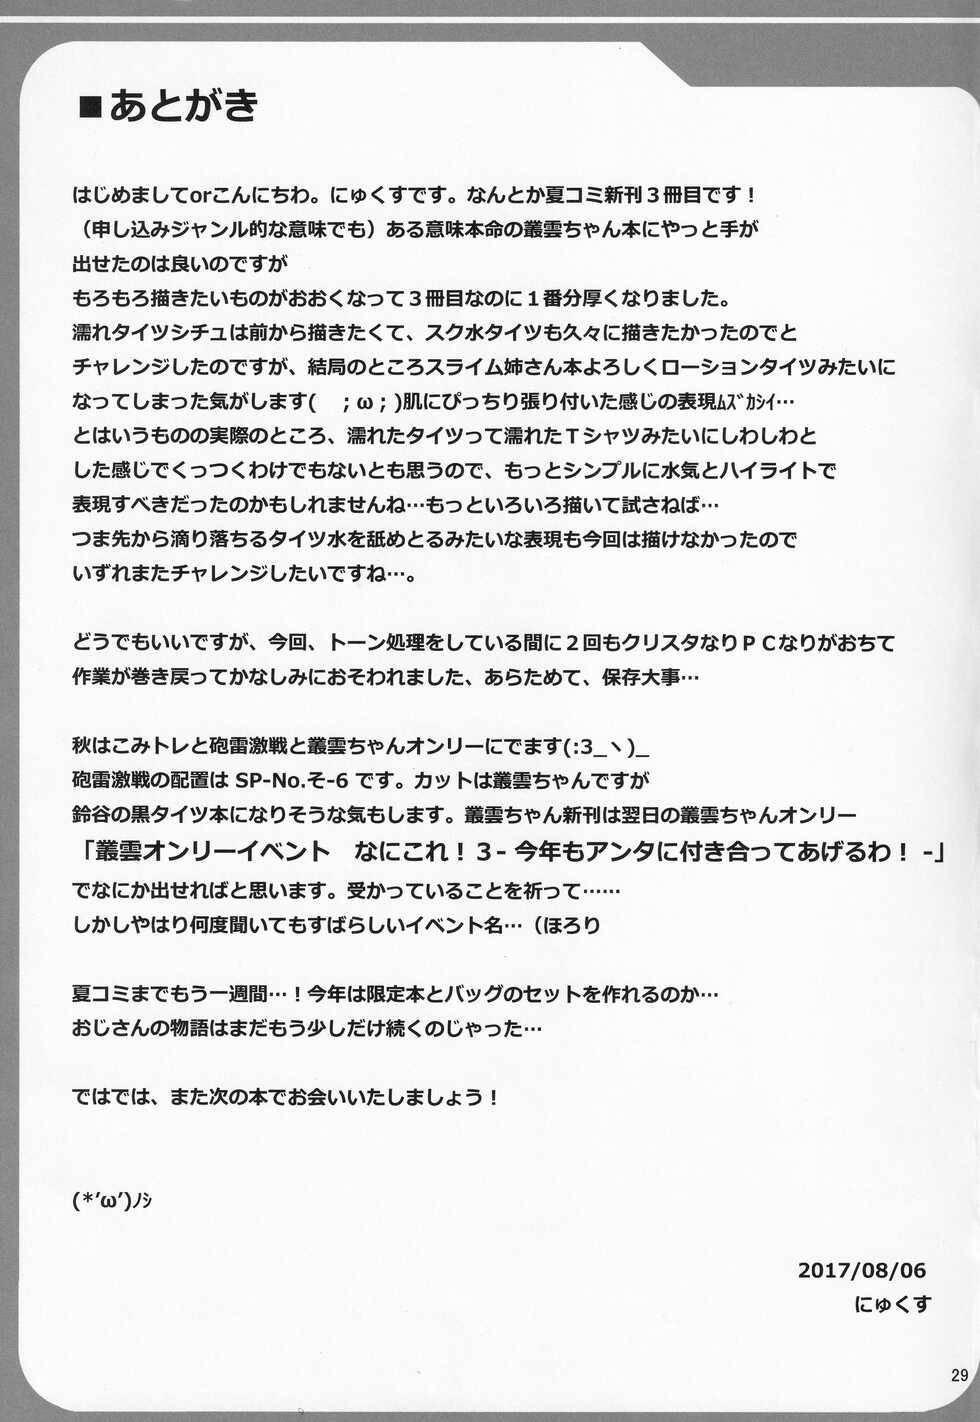 ■あとがき
はじめましてorこんにちわ。にゅくすです。なんとか夏コミ新刊３冊目です！
（申し込みジャンル的な意味でも）ある意味本命の叢雲ちゃん本にやっと手が
出せたのは良いのですが
もろもろ描きたいものがおおくなって３冊目なのに１番分厚くなりました。
濡れタイツシチュは前から描きたくて、スク水タイツも久々に描きたかったのでと
チャレンジしたのですが、結局のところスライム姉さん本よろしくローションタイツみたいに
なってしまった気がします(　；ω；)肌にぴっちり張り付いた感じの表現ﾑｽﾞｶｼｲ…
とはいうものの実際のところ、濡れたタイツって濡れたＴシャツみたいにしわしわと
した感じでくっつくわけでもないとも思うので、もっとシンプルに水気とハイライトで
表現すべきだったのかもしれませんね…もっといろいろ描いて試さねば…
つま先から滴り落ちるタイツ水を舐めとるみたいな表現も今回は描けなかったので
いずれまたチャレンジしたいですね…。
どうでもいいですが、今回、トーン処理をしている間に２回もクリスタなりＰＣなりがおちて
作業が巻き戻ってかなしみにおそわれました、あらためて、保存大事…
秋はこみトレと砲雷激戦と叢雲ちゃんオンリーにでます(:3_ヽ)_
砲雷激戦の配置は SP-No.そ-6 です。カットは叢雲ちゃんですが
鈴谷の黒タイツ本になりそうな気もします。叢雲ちゃん新刊は翌日の叢雲ちゃんオンリー
「叢雲オンリーイベント　なにこれ！３- 今年もアンタに付き合ってあげるわ！ -」
でなにか出せればと思います。受かっていることを祈って……
しかしやはり何度聞いてもすばらしいイベント名…（ほろり
夏コミまでもう一週間…！今年は限定本とバッグのセットを作れるのか…
おじさんの物語はまだもう少しだけ続くのじゃった…
ではでは、また次の本でお会いいたしましょう！
(*’ω’)ﾉｼ
2017/08/06
にゅくす
29